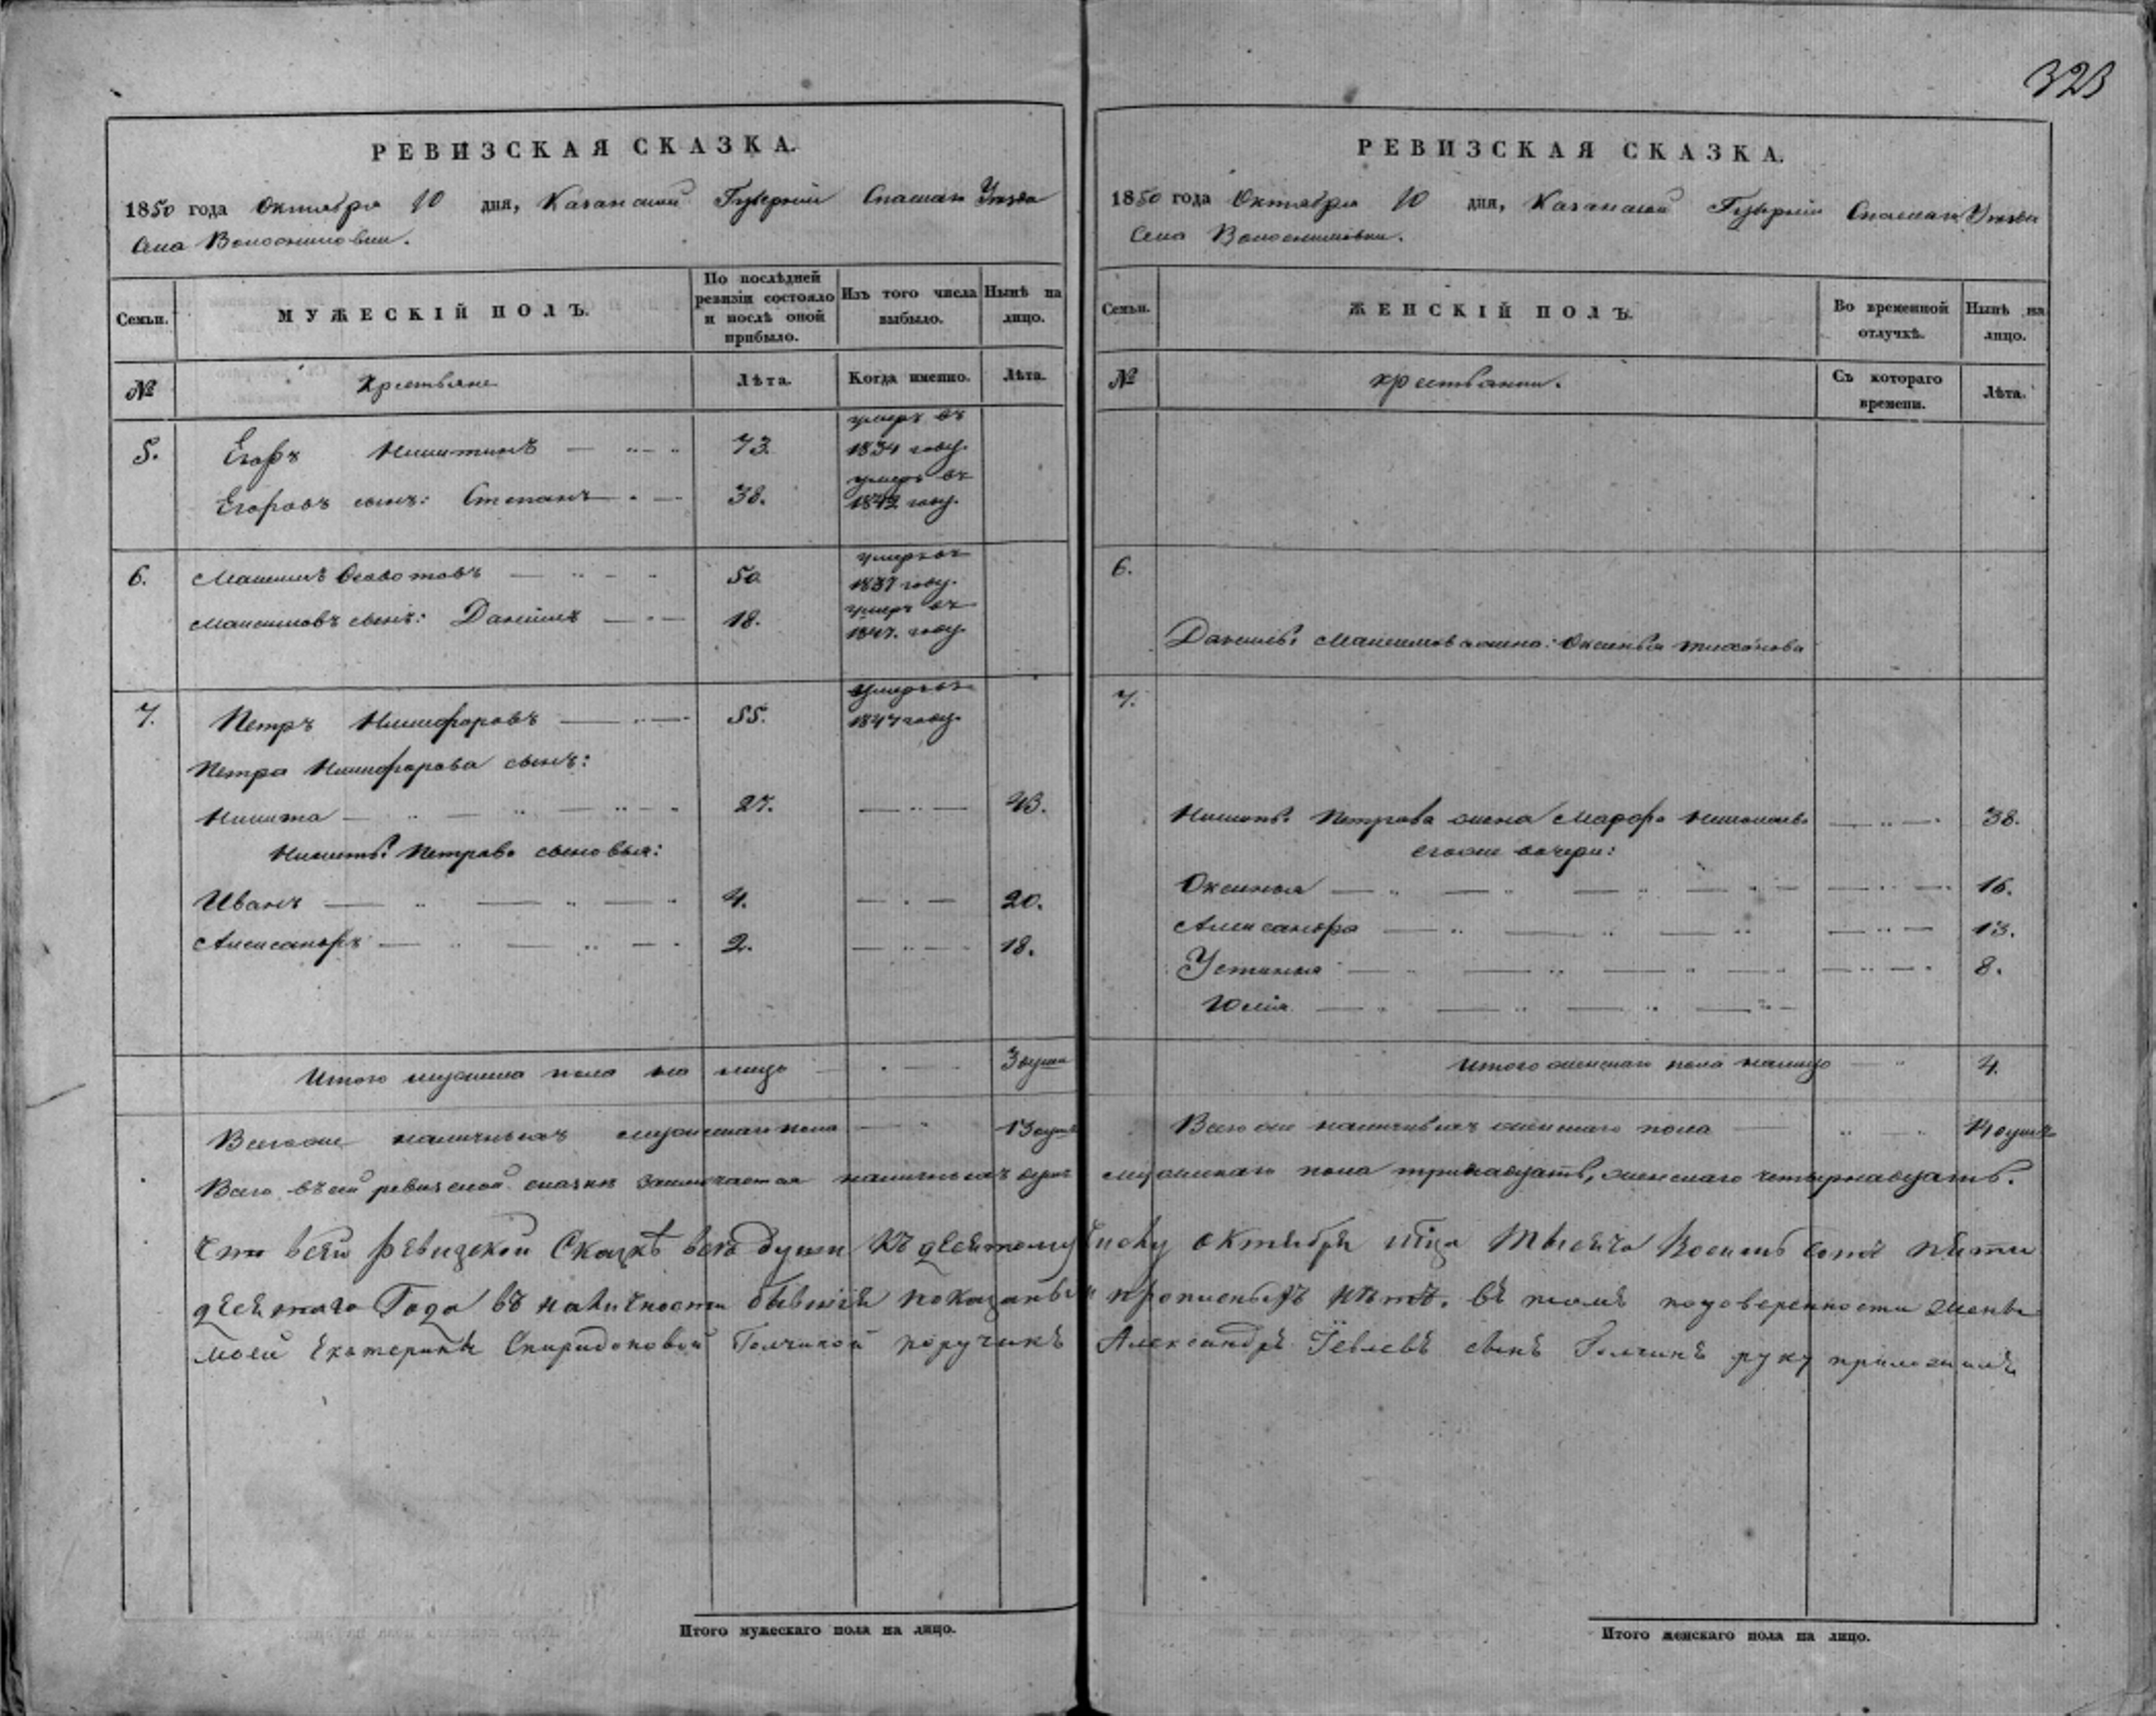 323
РЕВИЗСКАЯ СКАЗКА.
1850 года Октября 10 дня, Казанской Губернии Спаскаго Уезда
Села Волосниковки.
Семьи. МУЖЕСКІЙ ПОЛЪ. По послѣдней ревизіи состояло и послѣ оной прибыло. Изъ того числа выбыло. Нынѣ на лицо.
№ Крестьяне Лѣта. Когда именно. Лѣта.
5. Егоръ Никитинъ 73. умеръ въ 1834 году.
Егоровъ сынъ: Степанъ 38. умеръ въ 1842 году.
6. Максимъ 50 умеръ въ 1837 году.
Максимовъ сынъ: Данiилъ 18. умеръ въ 1847. году.
7. Петръ Никифоровъ 55. умеръ въ 1847 году.
Петра Никифорова сынъ:
Никита 27. 43.
Никиты Петрова сыновья:
Иванъ 4. 20.
Александръ 2. 18.
Итого мужеска пола на лицо 3 души
Всегоже наличныхъ мужескаго пола 13 душъ
РЕВИЗСКАЯ СКАЗКА.
1850 года Октября 10 дня, Казанской Губерніи Спаскаго Уезда
Села Волосниковки.
Семьи. ЖЕНСКІЙ ПОЛЪ. Во временной отлучкѣ. Нынѣ на лицо.
№ крестьянки. Съ котораго времени. Лѣта.
6.
Данилы Максимова жена: Оксинья Тихонова
7.
Никиты Петрова жена Марфа Николаева 38.
егоже дочери:
Оксинья 16.
Александра 13.
Устинья 8.
Юлія
Итого женскаго пола налицо 4.
Всего же наличныхъ женскаго пола 14 душъ
Всего въ сей ревизской сказке заключается наличныхъ душъ мужескаго пола тринадцать, женскаго четырнадцать.
Что всей ревизской Сказкѣ всѣ души къ десятому числу октября месяца тысеча восемь сотъ пяти
десятаго Года въ наличности бывшія показаны и прописныхъ нетъ. въ томъ по доверенности жены
моей Екатерины Спиридоновой Толчиной поручикъ Александръ сынъ Толчинъ руку приложилъ
Итого мужескаго пола на лицо.
Итого женскаго пола на лицо.